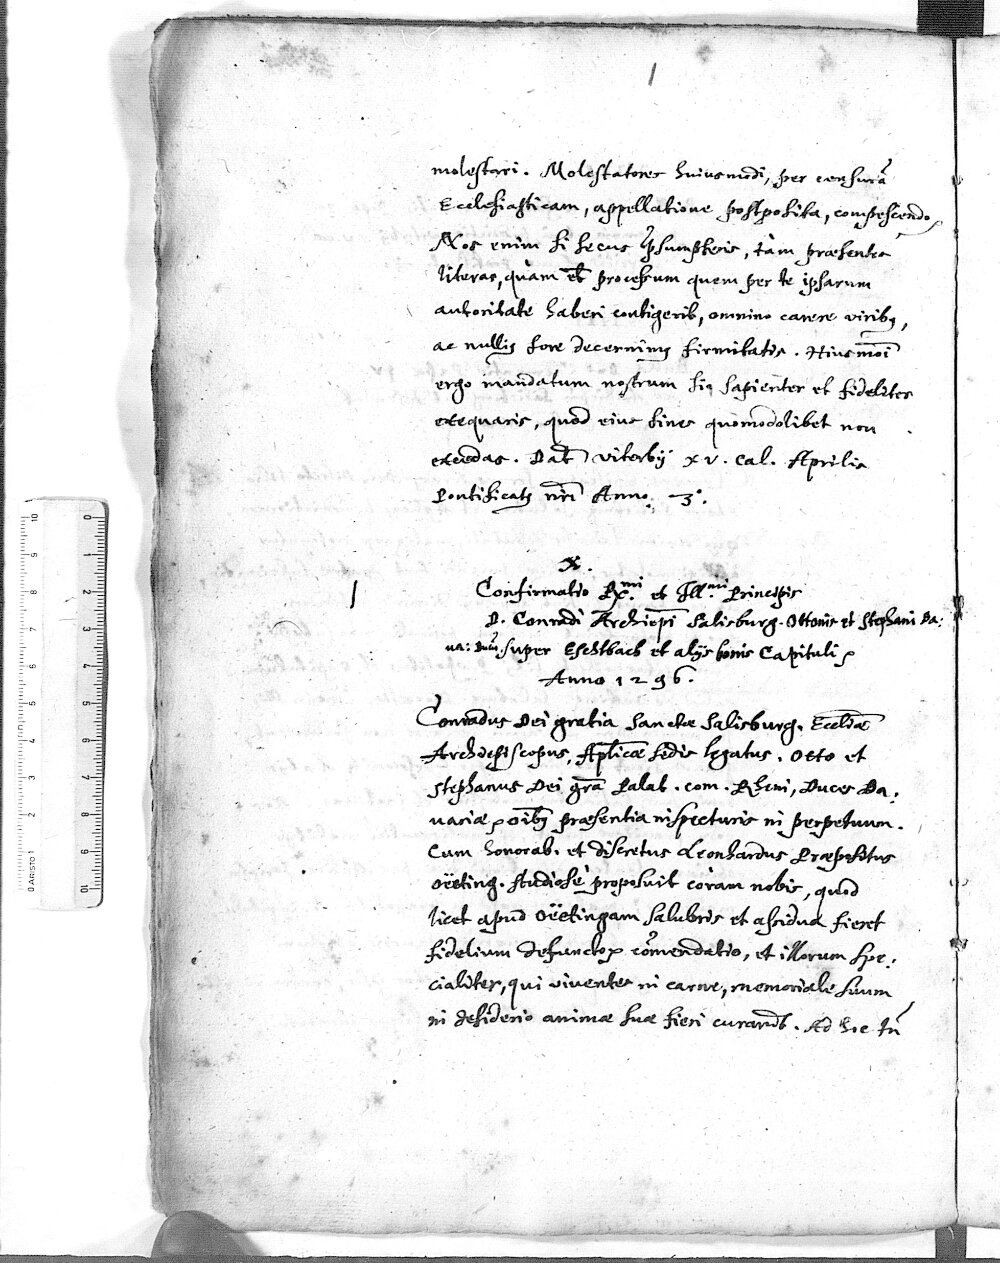 molestari. Molestatores huiusmodi, per censurã
Ecclesiasticam, appellatione postposita, compescendo
Nos enim si secus p̃sumpseris, tàm præsentes
literas, quàm et processum quem per te ipsarum
autoritate haberi contigerit, omnino carere viribꝫ,
ac nullis fore decernimus firmitatis. Hiusmõi
ergo mandatum nostrum sic sapienter et fideliter
exequaris, quod eius fines quomodolibet non
excedas. Dat Viterbij XV. Cal. Aprilis
Pontificatꝰ nr̃i Anno. 3°.
X.
Confirmatio Rx.mi et Ill.mi Principis
D. Conradi Archiepĩ Salisburg. Ottonis et Stephani Ba:
ua: Ducũ super Eschlbach et alijs bonis Capituli
Anno 1296.
Conradus Dei gratia Sanctæ Salisburg. Eccliæ
Archiepiscopus, Aplicæ sedis legatus. Otto et
Stephanus Dei grã Palat. com. Rheni, Duces Ba,
uariæ oĩbꝫ præsentia inspecturis in perpetuum.
Cum honorab. et discretus Leonhardus Præpositus
Oëting. studiosè proposuit còram nobis, quod
licet apud Oëtingam salubris et assidua fieret
fidelium defunctoꝝ cõmendatio, et illorum spe:
cialiter, qui viventes in carne, memoriale suum
in desiderio animæ suæ fieri curarũt. Ad hoc tñ